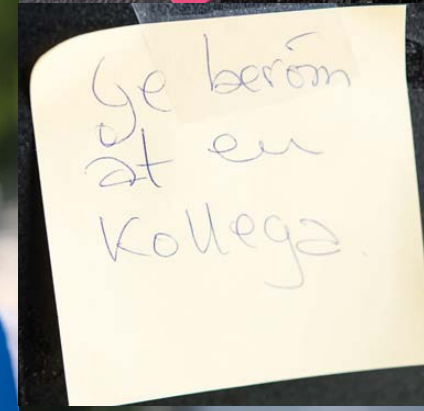 Ge beröm
åt en
kollega.